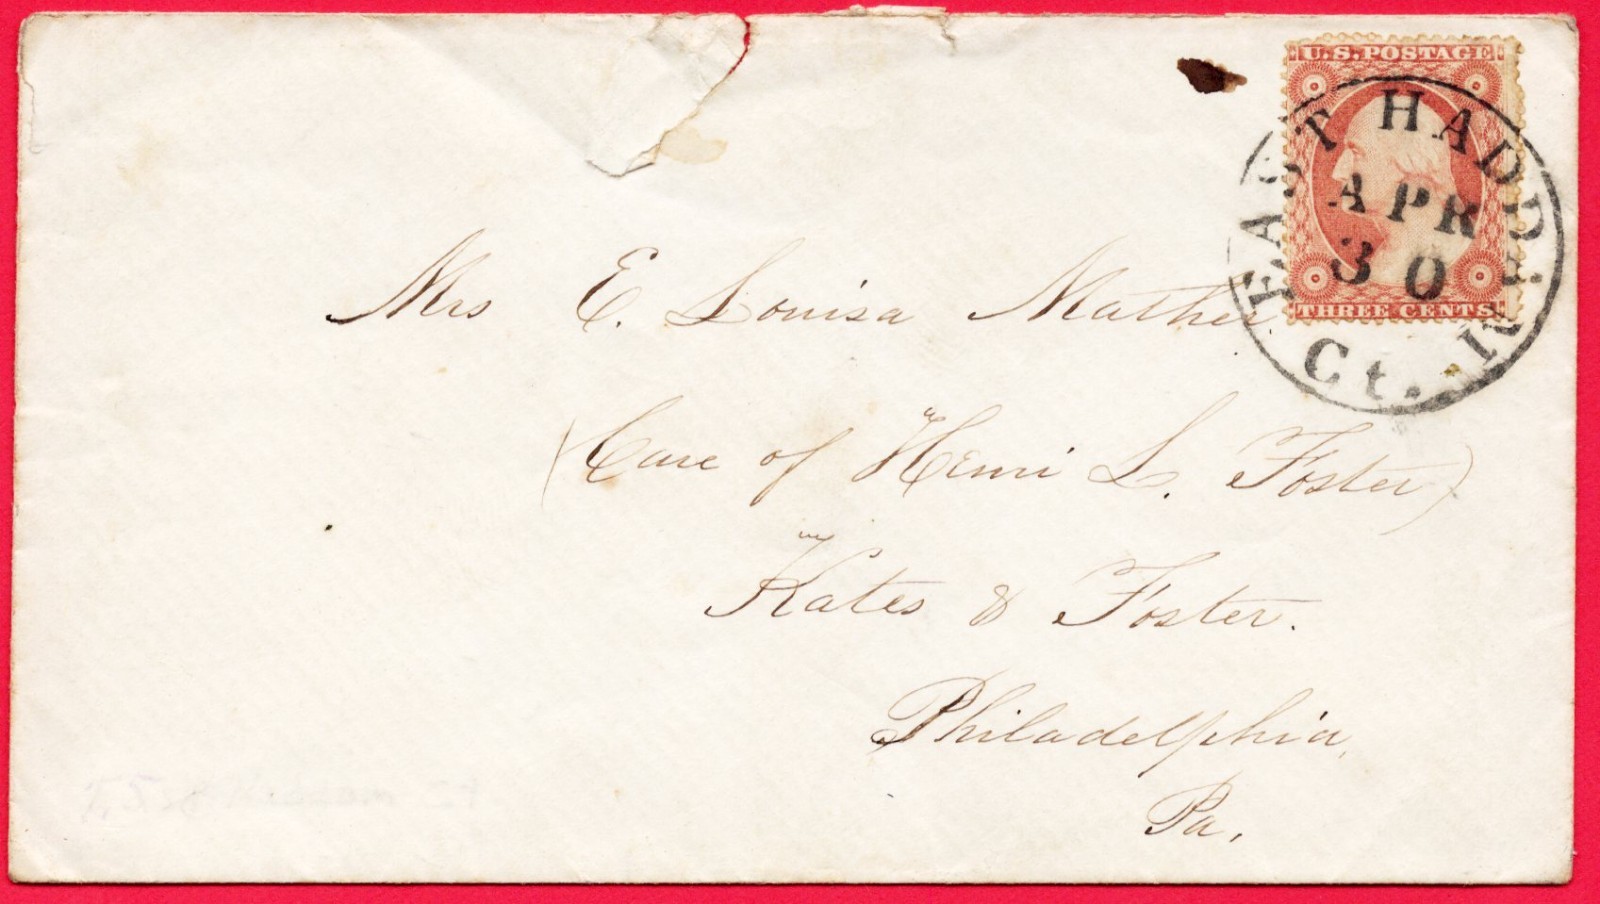 U.S. POSTAGE
THREE CENTS
EAST HADDAM
Ct.
APR
30
Mrs E. Louisa Mather
(Care of Henri L. Foster)
Kates & Foster.
Philadelphia,
Pa,